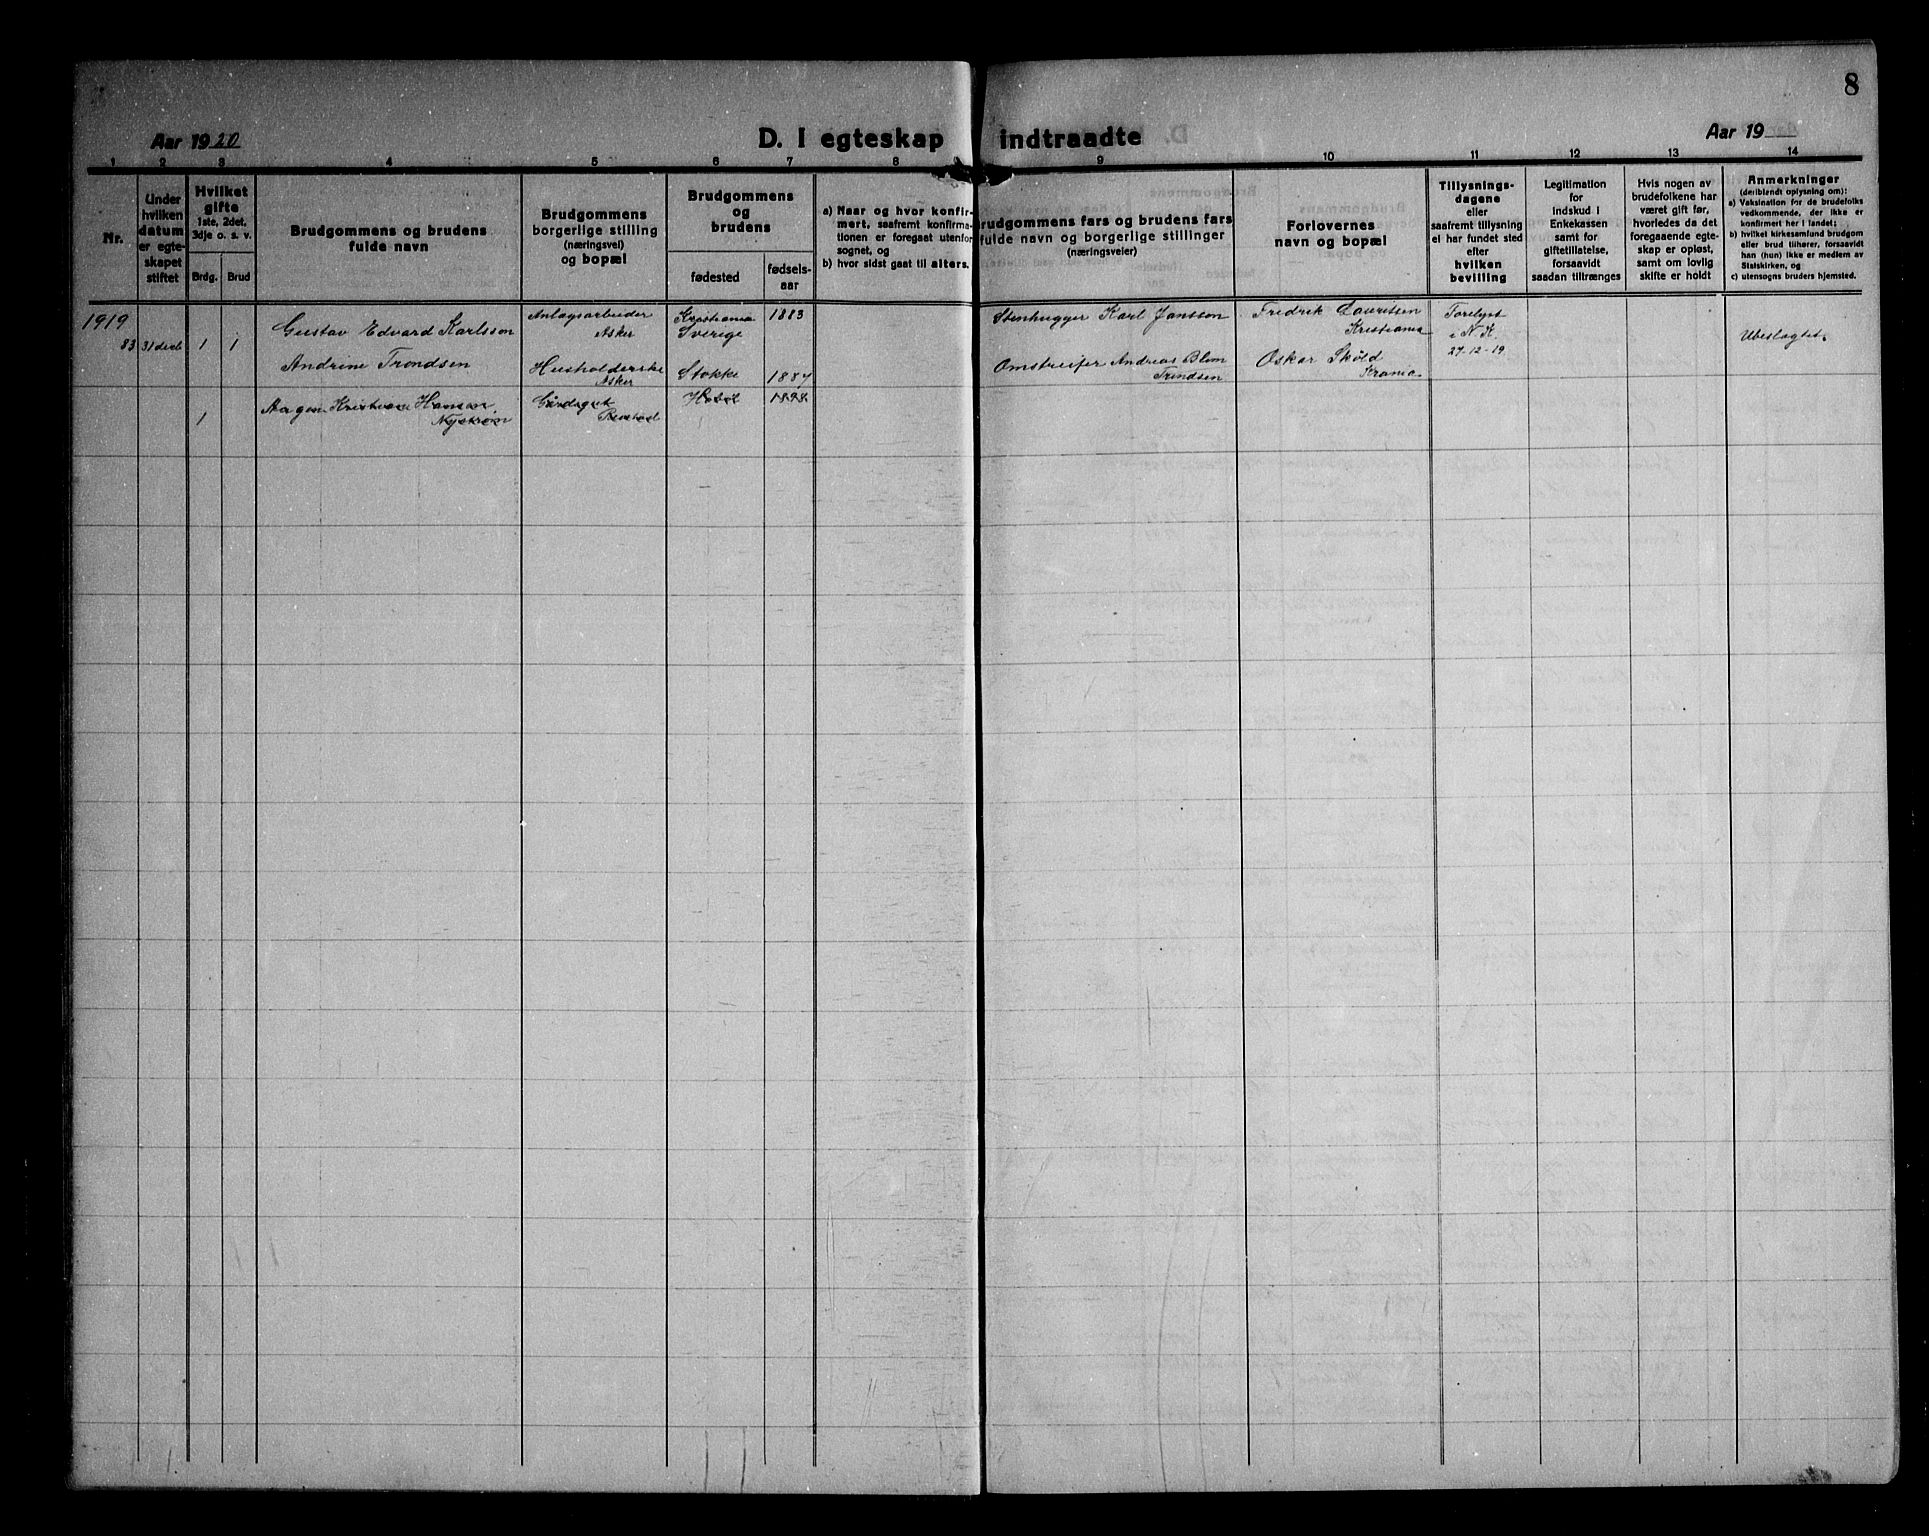 8
Aar 1920
D. I egteskap indtraadte
Aar 19
1 2 3 4 5 6 7 8 9 10 11 12 13 14
Nr.
Under
hvilken
datum
er egte-
skapet
stiftet
Hvilket
gifte
1ste, 2det,
3dje o. s. v.
Brdg. Brud
Brudgommens og brudens
fulde navn
Brudgommens
borgerlige stilling
(næringsvei)
og bopæl
Brudgommens
og
brudens
fødested
fødsels-
aar
a) Naar og hvor konfir-
mert, saafremt konfirma-
tionen er foregaat utenfor
sognet, og
b) hvor sidst gaat til alters.
Brudgommens fars og brudens fars
fulde navn og borgerlige stillinger
(næringsveier)
Forlovernes
navn og bopæl
Tillysnings-
dagene
eller
saafremt tillysning
ei har fundet sted
efter
hvilken
bevilling
Legitimation
for
indskud i
Enkekassen
samt for
giftetillatelse,
forsaavidt
saadan tiltrænges
Hvis nogen av
brudefolkene har
været gift før,
hvorledes da det
foregaaende egte-
skap er opløst,
samt om lovlig
skifte er holdt
Anmerkninger
(deriblandt oplysning om):
a) Vaksination for de brudefolks
vedkommende, der ikke er
konfirmert her i landet;
b) hvilket kirkesamfund brudgom
eller brud tilhører, forsaavidt
han (hun) ikke er medlem av
Statskirken, og
c) utensogns bruders hjemsted.
1919
83 31 decb 1 1
Gustav Edvard Karlsson
Anlagsarbeider
Asker
Kristiania
Sverige
1883
Stenhugger Karl Jansson
Fredrik Lauritsen
Kristiania
Forelyst
i N. K.
27-12-19
Ubeslagtet.
Andrine Trondsen
Husholderske
Asker
Stokke 1887
Omstreifer Andreas Blom
Trondsen
Oskar Sköld
Krania
1
Kristian Hansen
Nyström